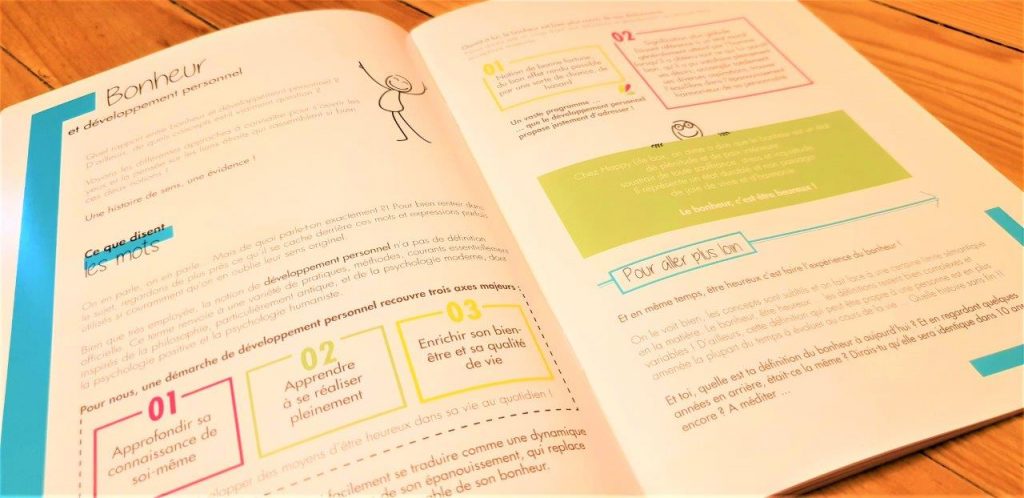 Bonheur
et développement personnel
Quel rapport entre bonheur et développement personnel ?
D'ailleurs, de quels concepts est-il vraiment question ?
Voyons les différentes approches à connaître pour s'ouvrir les
yeux et la pensée sur les liens étroits qui rassemblent si bien
ces deux notions !
Une histoire de sens, une évidence !
Ce que disent
les mots
On en parle, on en parle... Mais de quoi parle-t-on exactement ?! Pour bien rentrer dans
le sujet, regardons de plus près ce qui se cache derrière ces mots et expressions parfois
utilisés si couramment qu'on en oublie leur sens originel.
Bien que très employée, la notion de développement personnel n'a pas de définition
officielle. Ce terme renvoie à une variété de pratiques, méthodes, courants essentiellement
inspirés de la philosophie, particulièrement antique, et de la psychologie moderne, dont
la psychologie positive et la psychologie humaniste.
Pour nous, une démarche de développement personnel recouvre trois axes majeurs :
01
Approfondir sa
connaissance de
soi-même
02
Apprendre
à se réaliser
pleinement
03
Enrichir son bien-
être et sa qualité
de vie
développer des moyens d'être heureux dans sa vie au quotidien !
facilement se traduire comme une dynamique
de son épanouissement, qui replace
de son bonheur.
01
Notion de bonne fortune,
du bon effet rendu possible
par une sorte de chance, de
hasard
02
Un vaste programme ...
... que le développement personnel
propose justement d'adresser !
Chez Happy Life box,
Le bonheur, c'est être heureux !
Pour aller plus loin
Et en même temps, être heureux c'est faire l'expérience du bonheur !
On le voit bien, les concepts sont subtils et on fait face à une certaine limite sémantique
en la matière. Le bonheur, être heureux... les définitions restent bien complexes et
variables ! D'ailleurs, cette définition qui peut être propre à une personne est en plus
amenée la plupart du temps à évoluer au cours de la vie. Quelle histoire sans fin !!
Et toi, quelle est ta définition du bonheur à aujourd'hui ? Et en regardant quelques
années en arrière, était-ce la même ? Dirais-tu qu'elle sera identique dans 10 ans
encore ? A méditer ...